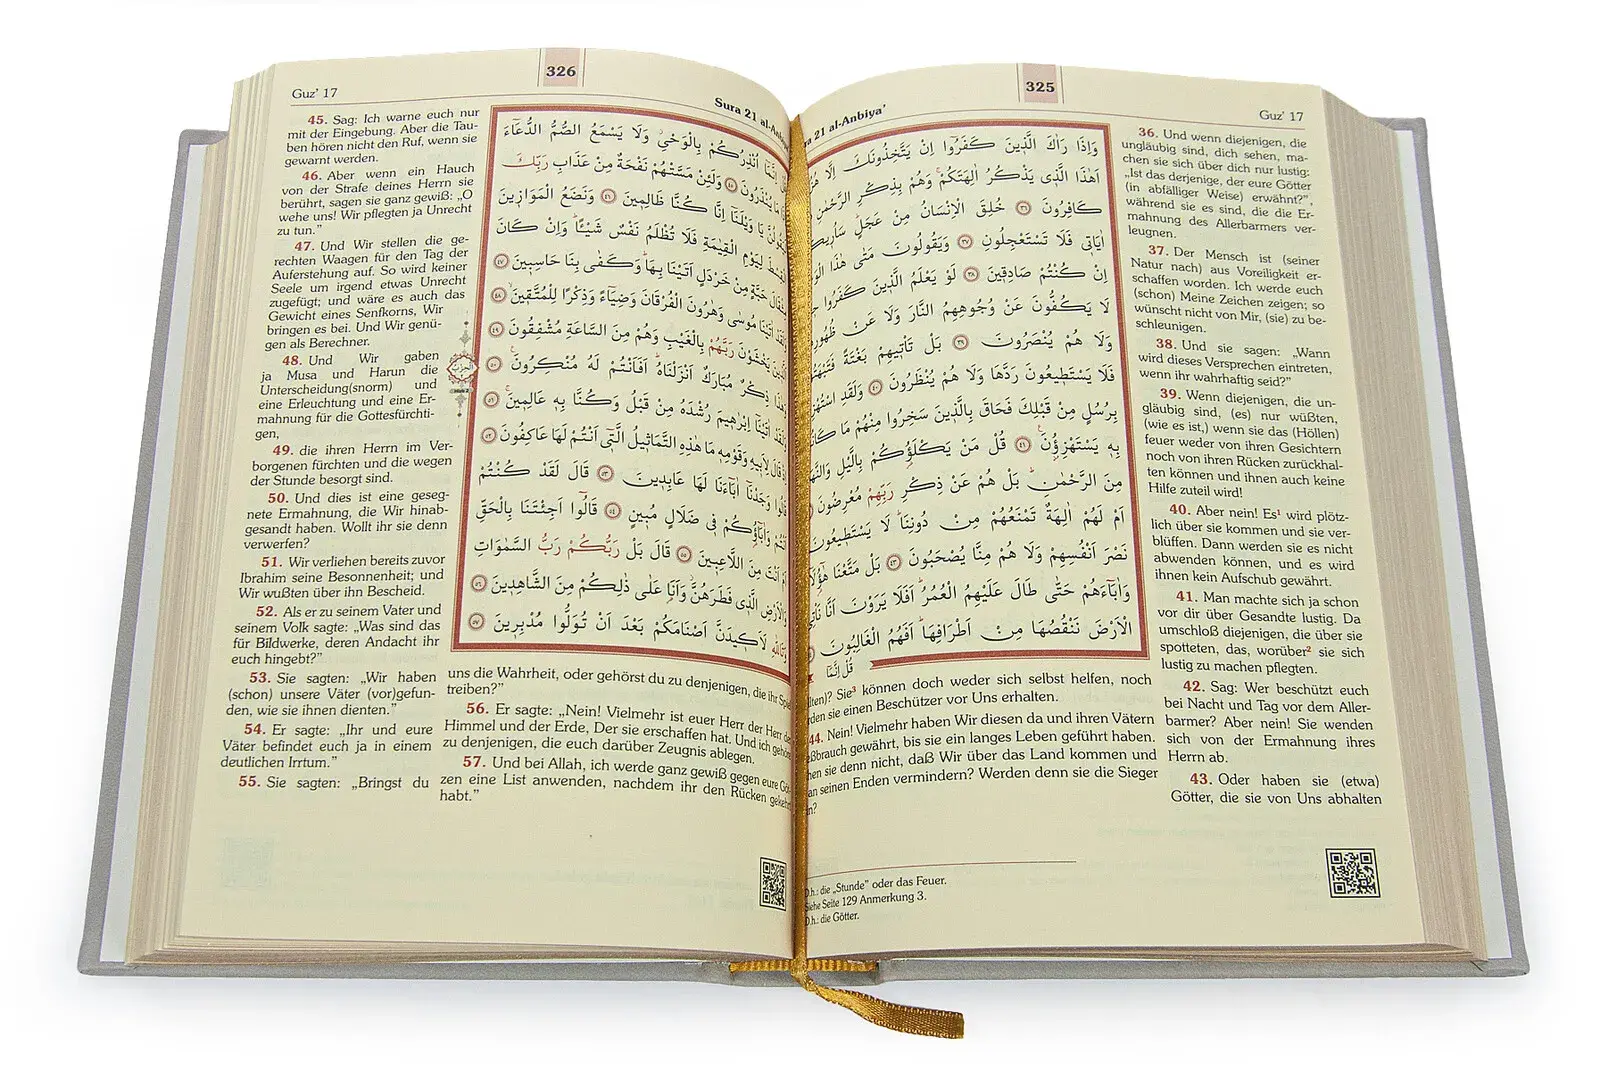 325
Guz' 17
21 al-Anbiya'
وَاِذَا رَاٰكَ الَّذ۪ينَ كَفَرُٓوا اِنْ يَتَّخِذُونَكَ اِلَّا
اَهٰذَا الَّذ۪ي يَذْكُرُ اٰلِهَتَكُمْۚ وَهُمْ بِذِكْرِ الرَّحْمٰنِ
كَافِرُونَ ﴿٣٦﴾ خُلِقَ الْاِنْسَانُ مِنْ عَجَلٍۜ سَاُر۪يكُمْ
اٰيَات۪ي فَلَا تَسْتَعْجِلُونِ ﴿٣٧﴾ وَيَقُولُونَ مَتٰى هٰذَا
اِنْ كُنْتُمْ صَادِق۪ينَ ﴿٣٨﴾ لَوْ يَعْلَمُ الَّذ۪ينَ كَفَرُوا
لَا يَكُفُّونَ عَنْ وُجُوهِهِمُ النَّارَ وَلَا عَنْ ظُهُورِهِمْ
وَلَا هُمْ يُنْصَرُونَ ﴿٣٩﴾ بَلْ تَأْت۪يهِمْ بَغْتَةً فَتَبْهَتُهُمْ
فَلَا يَسْتَط۪يعُونَ رَدَّهَا وَلَا هُمْ يُنْظَرُونَ ﴿٤٠﴾ وَلَقَدِ
بِرُسُلٍ مِنْ قَبْلِكَ فَحَاقَ بِالَّذ۪ينَ سَخِرُوا مِنْهُمْ مَا كَانُوا
بِه۪ يَسْتَهْزِؤُ۫نَ۟ ﴿٤١﴾ قُلْ مَنْ يَكْلَؤُ۬كُمْ بِالَّيْلِ وَالنَّهَارِ
مِنَ الرَّحْمٰنِۜ بَلْ هُمْ عَنْ ذِكْرِ رَبِّهِمْ مُعْرِضُونَ
اَمْ لَهُمْ اٰلِهَةٌ تَمْنَعُهُمْ مِنْ دُونِنَاۜ لَا يَسْتَط۪يعُونَ
نَصْرَ اَنْفُسِهِمْ وَلَا هُمْ مِنَّا يُصْحَبُونَ ﴿٤٣﴾ بَلْ مَتَّعْنَا
وَاٰبَٓاءَهُمْ حَتّٰى طَالَ عَلَيْهِمُ الْعُمُرُۜ اَفَلَا يَرَوْنَ اَنَّا
الْاَرْضَ نَنْقُصُهَا مِنْ اَطْرَافِهَاۜ اَفَهُمُ الْغَالِبُونَ
قُلْ اِنَّمَٓا
36. Und wenn diejenigen, die
ungläubig sind, dich sehen, ma-
chen sie sich über dich nur lustig:
„Ist das derjenige, der eure Götter
(in abfälliger Weise) erwähnt?",
während sie es sind, die die Er-
mahnung des Allerbarmers ver-
leugnen.
37. Der Mensch ist (seiner
Natur nach) aus Voreiligkeit er-
schaffen worden. Ich werde euch
(schon) Meine Zeichen zeigen; so
wünscht nicht von Mir, (sie) zu be-
schleunigen.
38. Und sie sagen: „Wann
wird dieses Versprechen eintreten,
wenn ihr wahrhaftig seid?"
39. Wenn diejenigen, die un-
gläubig sind, (es) nur wüßten,
(wie es ist,) wenn sie das (Höllen)
feuer weder von ihren Gesichtern
noch von ihren Rücken zurückhal-
ten können und ihnen auch keine
Hilfe zuteil wird!
40. Aber nein! Es¹ wird plötz-
lich über sie kommen und sie ver-
blüffen. Dann werden sie es nicht
abwenden können, und es wird
ihnen kein Aufschub gewährt.
41. Man machte sich ja schon
vor dir über Gesandte lustig. Da
umschloß diejenigen, die über sie
spotteten, das, worüber² sie sich
lustig zu machen pflegten.
42. Sag: Wer beschützt euch
bei Nacht und Tag vor dem Aller-
barmer? Aber nein! Sie wenden
sich von der Ermahnung ihres
Herrn ab.
43. Oder haben sie (etwa)
Götter, die sie von Uns abhalten
Sie³ können doch weder sich selbst helfen, noch
sie einen Beschützer vor Uns erhalten.
44. Nein! Vielmehr haben Wir diesen da und ihren Vätern
gewährt, bis sie ein langes Leben geführt haben.
sie denn nicht, daß Wir über das Land kommen und
seinen Enden vermindern? Werden denn sie die Sieger
D.h.: die „Stunde" oder das Feuer.
Siehe Seite 129 Anmerkung 3.
D.h.: die Götter.
326
Guz' 17
Sura 21
اِنَّمَٓا اُنْذِرُكُمْ بِالْوَحْيِۘ وَلَا يَسْمَعُ الصُّمُّ الدُّعَٓاءَ
مَا يُنْذَرُونَ ﴿٤٥﴾ وَلَئِنْ مَسَّتْهُمْ نَفْحَةٌ مِنْ عَذَابِ رَبِّكَ
يَا وَيْلَنَٓا اِنَّا كُنَّا ظَالِم۪ينَ ﴿٤٦﴾ وَنَضَعُ الْمَوَاز۪ينَ
لِيَوْمِ الْقِيٰمَةِ فَلَا تُظْلَمُ نَفْسٌ شَيْـًٔاۜ وَاِنْ كَانَ
حَبَّةٍ مِنْ خَرْدَلٍ اَتَيْنَا بِهَاۜ وَكَفٰى بِنَا حَاسِب۪ينَ ﴿٤٧﴾
اٰتَيْنَا مُوسٰى وَهٰرُونَ الْفُرْقَانَ وَضِيَٓاءً وَذِكْرًا لِلْمُتَّق۪ينَۙ ﴿٤٨﴾
يَخْشَوْنَ رَبَّهُمْ بِالْغَيْبِ وَهُمْ مِنَ السَّاعَةِ مُشْفِقُونَ ﴿٤٩﴾
ذِكْرٌ مُبَارَكٌ اَنْزَلْنَاهُۜ اَفَاَنْتُمْ لَهُ مُنْكِرُونَ۟ ﴿٥٠﴾
اٰتَيْنَٓا اِبْرٰه۪يمَ رُشْدَهُ مِنْ قَبْلُ وَكُنَّا بِه۪ عَالِم۪ينَۚ ﴿٥١﴾
قَالَ لِاَب۪يهِ وَقَوْمِه۪ مَا هٰذِهِ التَّمَاث۪يلُ الَّت۪ٓي اَنْتُمْ لَهَا عَاكِفُونَ ﴿٥٢﴾
قَالُوا وَجَدْنَٓا اٰبَٓاءَنَا لَهَا عَابِد۪ينَ ﴿٥٣﴾ قَالَ لَقَدْ كُنْتُمْ
اَنْتُمْ وَاٰبَٓاؤُ۬كُمْ ف۪ي ضَلَالٍ مُب۪ينٍ ﴿٥٤﴾ قَالُٓوا اَجِئْتَنَا بِالْحَقِّ
اَمْ اَنْتَ مِنَ اللَّاعِب۪ينَ ﴿٥٥﴾ قَالَ بَلْ رَبُّكُمْ رَبُّ السَّمٰوَاتِ
وَالْاَرْضِ الَّذ۪ي فَطَرَهُنَّۘ وَاَنَا۬ عَلٰى ذٰلِكُمْ مِنَ الشَّاهِد۪ينَ ﴿٥٦﴾
وَتَاللّٰهِ لَاَك۪يدَنَّ اَصْنَامَكُمْ بَعْدَ اَنْ تُوَلُّوا مُدْبِر۪ينَ ﴿٥٧﴾
الحزب
45. Sag: Ich warne euch nur
mit der Eingebung. Aber die Tau-
ben hören nicht den Ruf, wenn sie
gewarnt werden.
46. Aber wenn ein Hauch
von der Strafe deines Herrn sie
berührt, sagen sie ganz gewiß: „O
wehe uns! Wir pflegten ja Unrecht
zu tun."
47. Und Wir stellen die ge-
rechten Waagen für den Tag der
Auferstehung auf. So wird keiner
Seele um irgend etwas Unrecht
zugefügt; und wäre es auch das
Gewicht eines Senfkorns, Wir
bringen es bei. Und Wir genü-
gen als Berechner.
48. Und Wir gaben
ja Musa und Harun die
Unterscheidung(snorm) und
eine Erleuchtung und eine Er-
mahnung für die Gottesfürchti-
gen,
49. die ihren Herrn im Ver-
borgenen fürchten und die wegen
der Stunde besorgt sind.
50. Und dies ist eine geseg-
nete Ermahnung, die Wir hinab-
gesandt haben. Wollt ihr sie denn
verwerfen?
51. Wir verliehen bereits zuvor
Ibrahim seine Besonnenheit; und
Wir wußten über ihn Bescheid.
52. Als er zu seinem Vater und
seinem Volk sagte: „Was sind das
für Bildwerke, deren Andacht ihr
euch hingebt?"
53. Sie sagten: „Wir haben
(schon) unsere Väter (vor)gefun-
den, wie sie ihnen dienten."
54. Er sagte: „Ihr und eure
Väter befindet euch ja in einem
deutlichen Irrtum."
55. Sie sagten: „Bringst du
uns die Wahrheit, oder gehörst du zu denjenigen, die ihr
treiben?"
56. Er sagte: „Nein! Vielmehr ist euer Herr der Herr der
Himmel und der Erde, Der sie erschaffen hat. Und ich gehöre
zu denjenigen, die euch darüber Zeugnis ablegen.
57. Und bei Allah, ich werde ganz gewiß gegen eure
zen eine List anwenden, nachdem ihr den Rücken gekehrt
habt."